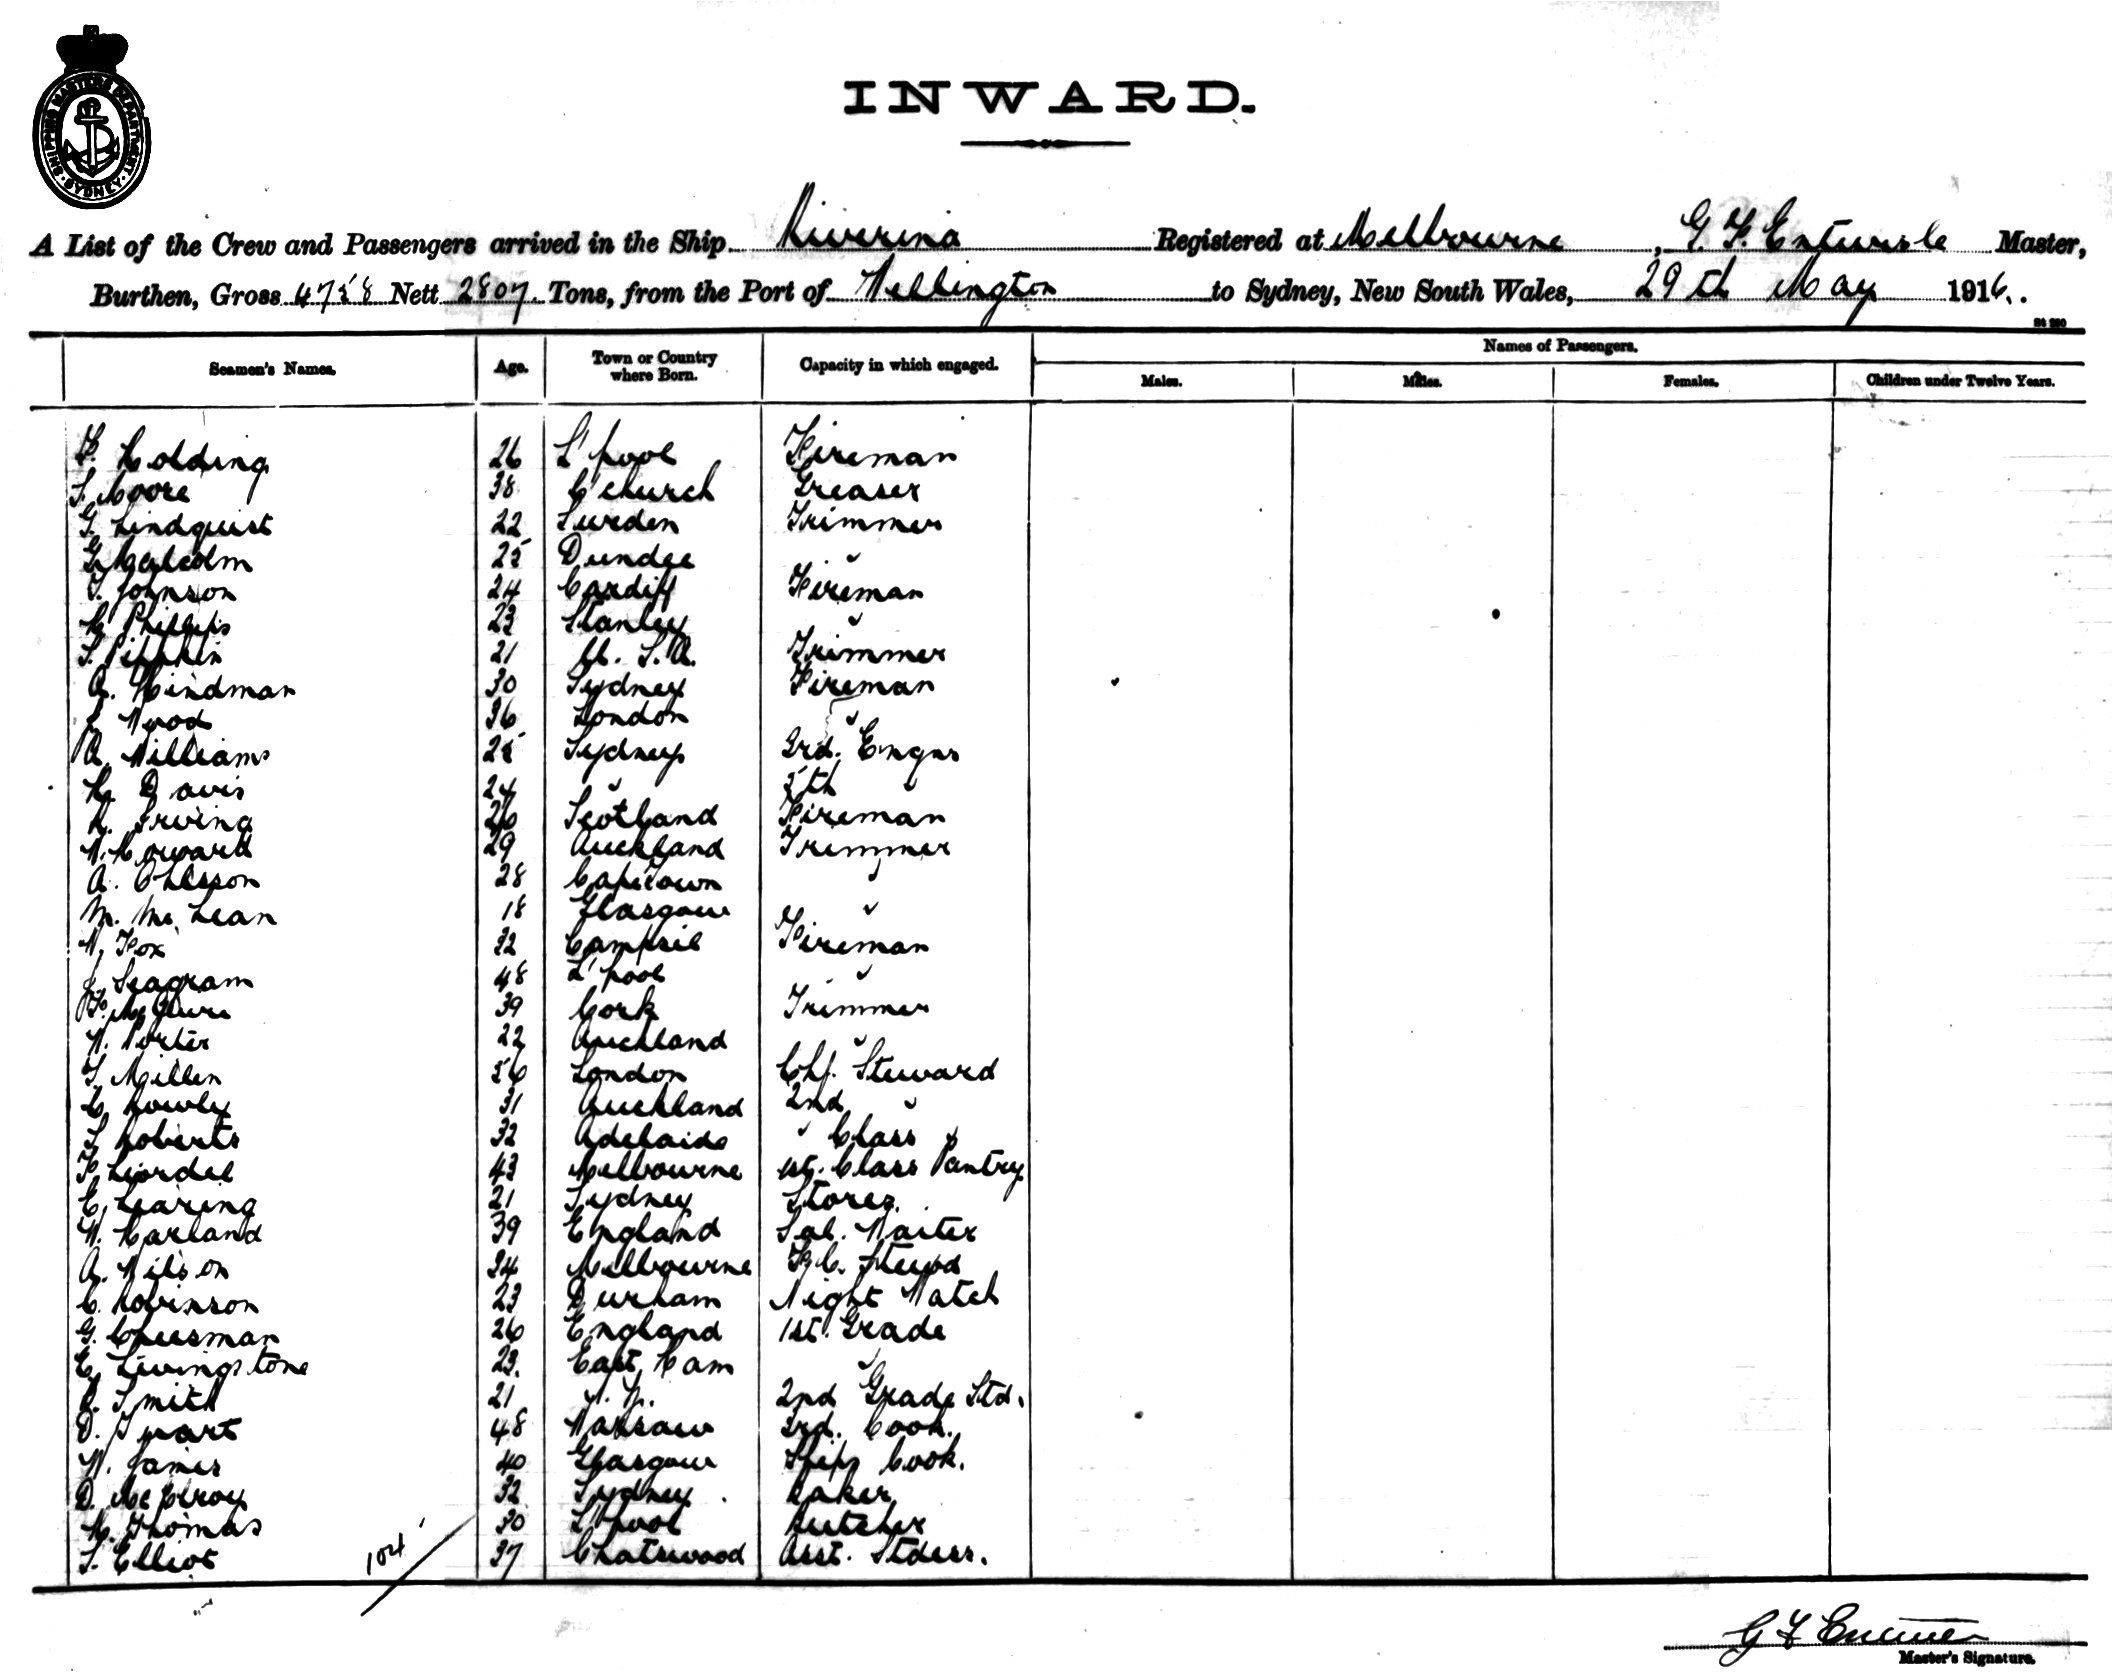 SHIPPING MASTERS DEPARTMENT · SYDNEY ·
INWARD.
A List of the Crew and Passengers arrived in the Ship Riverina Registered at Melbourne, G. F. Entwisle Master,
Burthen, Gross 4758 Nett 2807 Tons, from the Port of Wellington to Sydney, New South Wales, 29th May 1916.
Seamen's Names. Age. Town or Country where Born. Capacity in which engaged. Names of Passengers.
Males. Males. Females. Children under Twelve Years.
Holding 26 L'pool Fireman
Moore 38 C'church Greaser
G. Lindquist 22 Sweden Trimmer
G. Malcolm 25 Dundee "
Johnson 24 Cardiff Fireman
H. Phillips 23 Stanley "
S. Pipkin 21 U.S.A. Trimmer
A. Hindman 30 Sydney Fireman
Wood 36 London "
A. Williams 25 Sydney 3rd. Engnr
H. Davis 24 " 5th "
Irving 26 Scotland Fireman
W. Howard 29 Auckland Trimmer
A. Ohlsson 28 Capetown "
M. McLean 18 Glasgow "
W. Fox 32 Campsie Fireman
J. Seagram 48 L'pool "
39 Cork Trimmer
W. Porter 22 Auckland "
Millen 56 London Chf. Steward
31 Auckland 2nd "
Roberts 32 Adelaide " Class "
43 Melbourne 1st. Class Pantry
21 Sydney Stores.
W. Harland 39 England Sal. Waiter
A. Wilson 34 Melbourne
C. Robinson 23 Durham Night Watch
G. Cheesman 26 England 1st. Grade
E. Livingstone 23. East Ham "
Smith 21 2nd Grade Std.
D. 48 Warsaw 3rd. Cook.
W. James 40 Glasgow Ships Cook.
D. McElroy 32 Sydney. Baker
H. Thomas 30 L'pool Butcher
S. Elliot 37 Chatswood Asst. Stdess.
104
G F
Master's Signature.